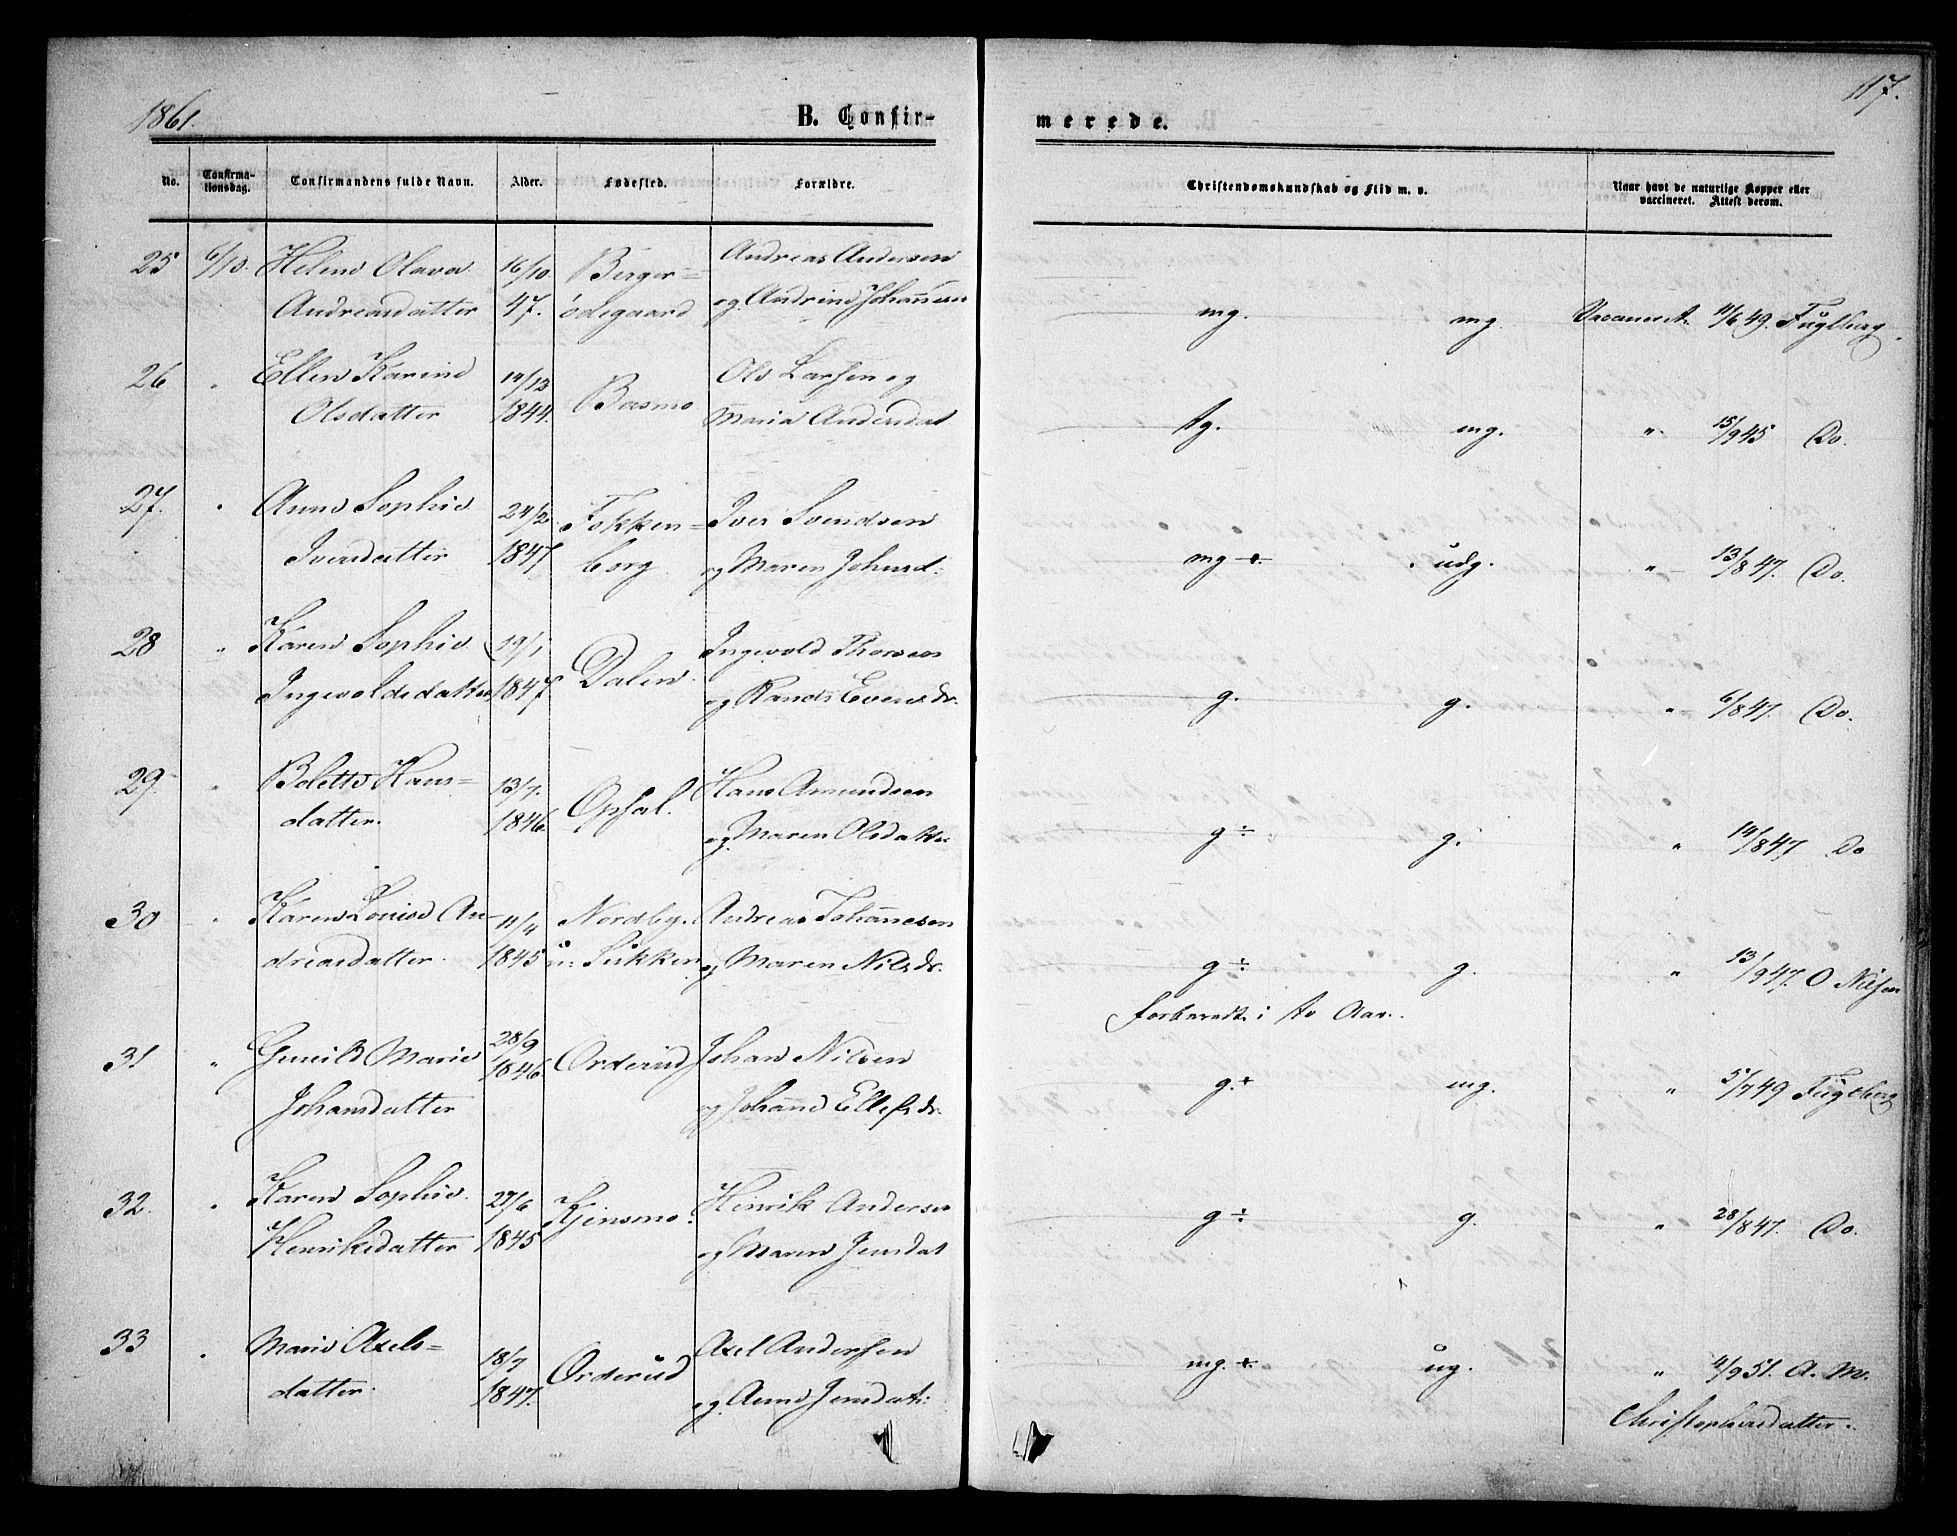 1861. B. Confir- merede. 117.
No. Confirma-tionsdag. Confirmandens fulde Navn. Alder. Fødested. Forældre. Christendomskundskab og Flid m. v. Naar havt de naturlige Kopper eller vaccineret. Attest derom.
25 6/10. Helene Olava 16/10. Berger= Andreas Andersen
Andreasdatter 47. ødegaard og Andrine Johannesen mg. mg. Vaccineret 11/6 49. Fuglberg.
26 " Ellen Karine 14/12 Basmo Ole Larsen og
Olsdatter 1844. Maria Andersdat tg. mg. " 15/9 45 Do.
27. " Anne Sophie 24/2 Fokken= Iver Svendsen
Iversdatter 1847 borg og Maren Johnsd: mg + udg. " 13/8 47. Do.
28 " Karen Sophie 19/1 Dalen. Ingevold Thoresen
Ingevoldsdatter 1847. og Randi Evensdr. g. g. " 6/8 47. Do.
29. " Bolette Hans= 13/7. Opsal. Hans Amundsen
datter. 1846. og Maren Olsdatter g ÷ g. " 19/8 47 Do
30 " Karen Louise An- 11/4 Nordby. Andreas Johannesen
dreasdatter. 1845 u: Sukken og Maren Nilsdr. g ÷ g. " 13/9 47. O Nilsen
Forberedt i to Aar.
31 " Gunild Marie 28/9 1846. Orderud Johan Nilsen
Johansdatter og Johanne Ellefsdr. g.+ mg. " 5/7 49 Fuglberg
32. " Karen Sophie 27/6 Kjensmo. Henrik Andersen
Henriksdatter 1845 og Maren Jensdat g ÷ g. " 28/8 47. Do.
33 " Marie Axels= 18/7 Orderud Axel Andersen
datter. 1847. og Anne Jensdat: mg. + ug. " 4/9 51. A. M.
Christophersdatter.